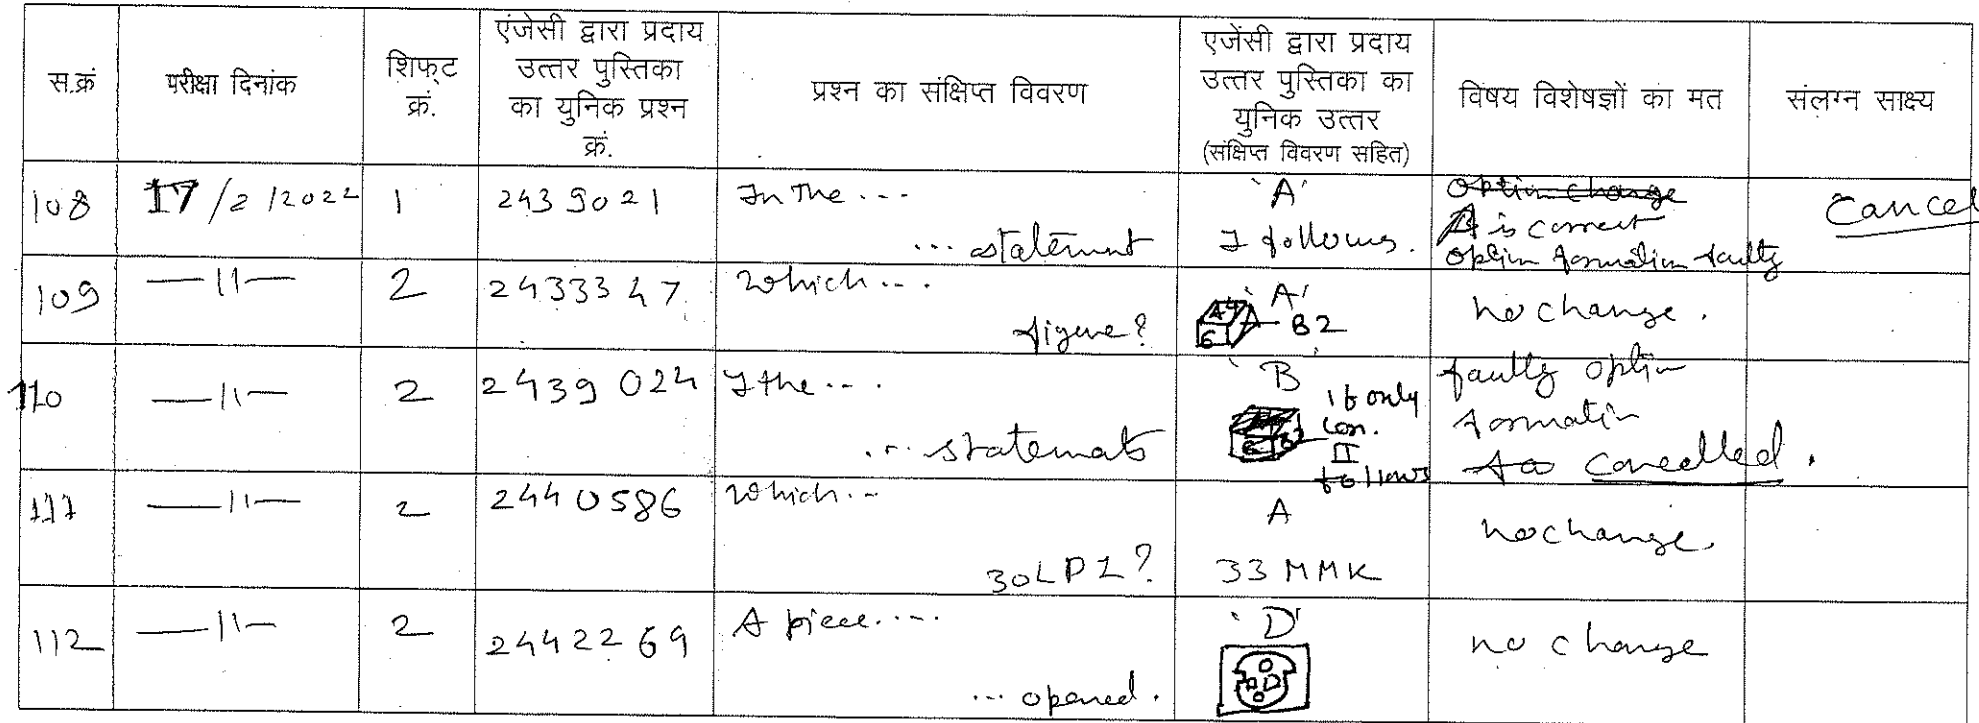 स.क्रं
परीक्षा दिनांक
शिफ्ट
क्रं.
एंजेसी द्वारा प्रदाय
उत्तर पुस्तिका
का युनिक प्रश्न
क्रं.
प्रश्न का संक्षिप्त विवरण
एजेंसी द्वारा प्रदाय
उत्तर पुस्तिका का
युनिक उत्तर
(संक्षिप्त विवरण सहित)
विषय विशेषज्ञों का मत
संलग्न साक्ष्य
108
17/2/2022
1
2439021
In the ...
... statement
'A'
I follows.
Option change
A is correct
Option formation faulty
Cancel
109
—11—
2
2433347
Which ...
figure?
'A'
A4
G
B2
no change.
110
—11—
2
2439024
I the ...
... statemats
'B'
if only
con.
II
follows
faulty option
formatin
cancelled.
111
—11—
2
2440586
Which ...
30LPI?
A
33 MMK
no change.
112
—11—
2
2442269
A piece ....
... opened.
'D'
no change